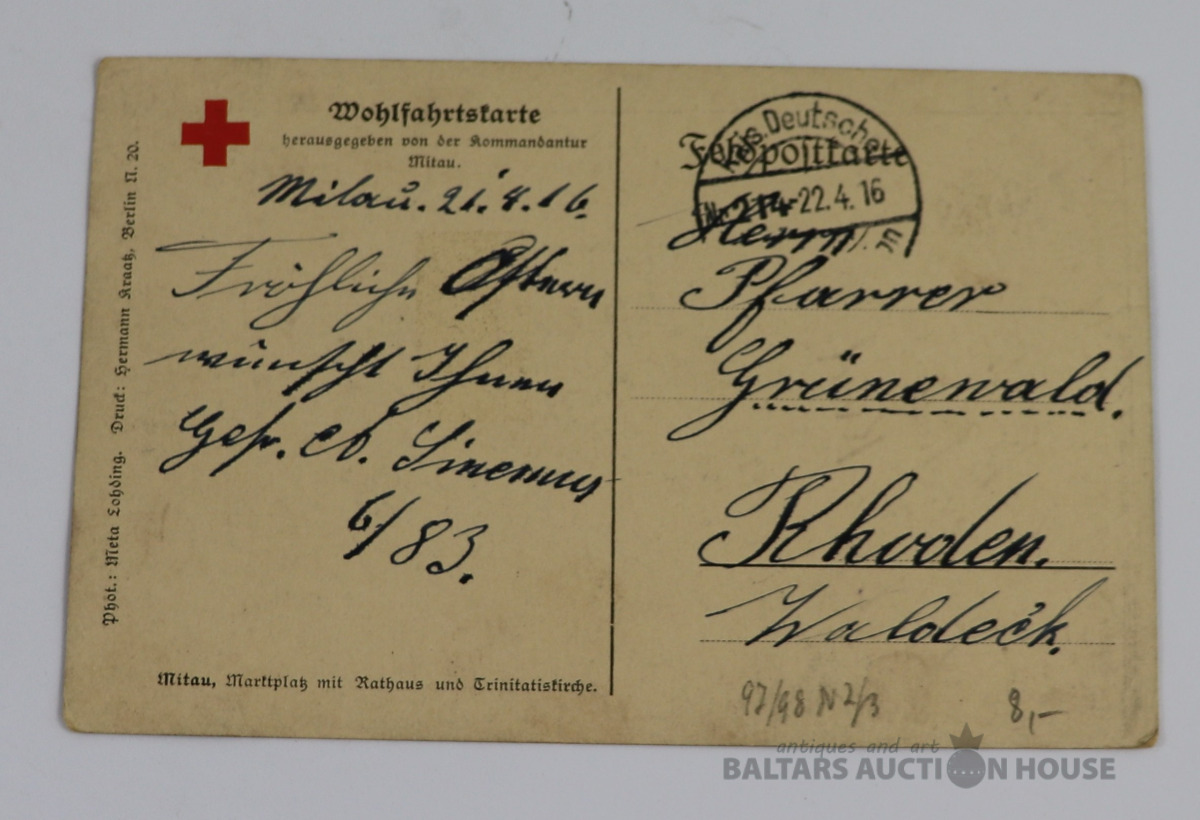 Wohlfahrtskarte
herausgegeben von der Kommandantur
Mitau.
Mitau. 21.4.16.
Fröhliche Ostern
wünscht Ihnen
Gefr. Sinemus
6/83.
Mitau, Marktplatz mit Rathaus und Trinitatiskirche.
Phot.: Meta Lohding. Druck: Hermann Kraatz, Berlin N. 20.
Feldpostkarte
Kais. Deutsche
Nr. 214 -22.4.16
Herrn
Pfarrer
Grünewald.
Rhoden.
Waldeck.
97/98 N 2/3
8,-
antiques and art
BALTARS AUCTION HOUSE